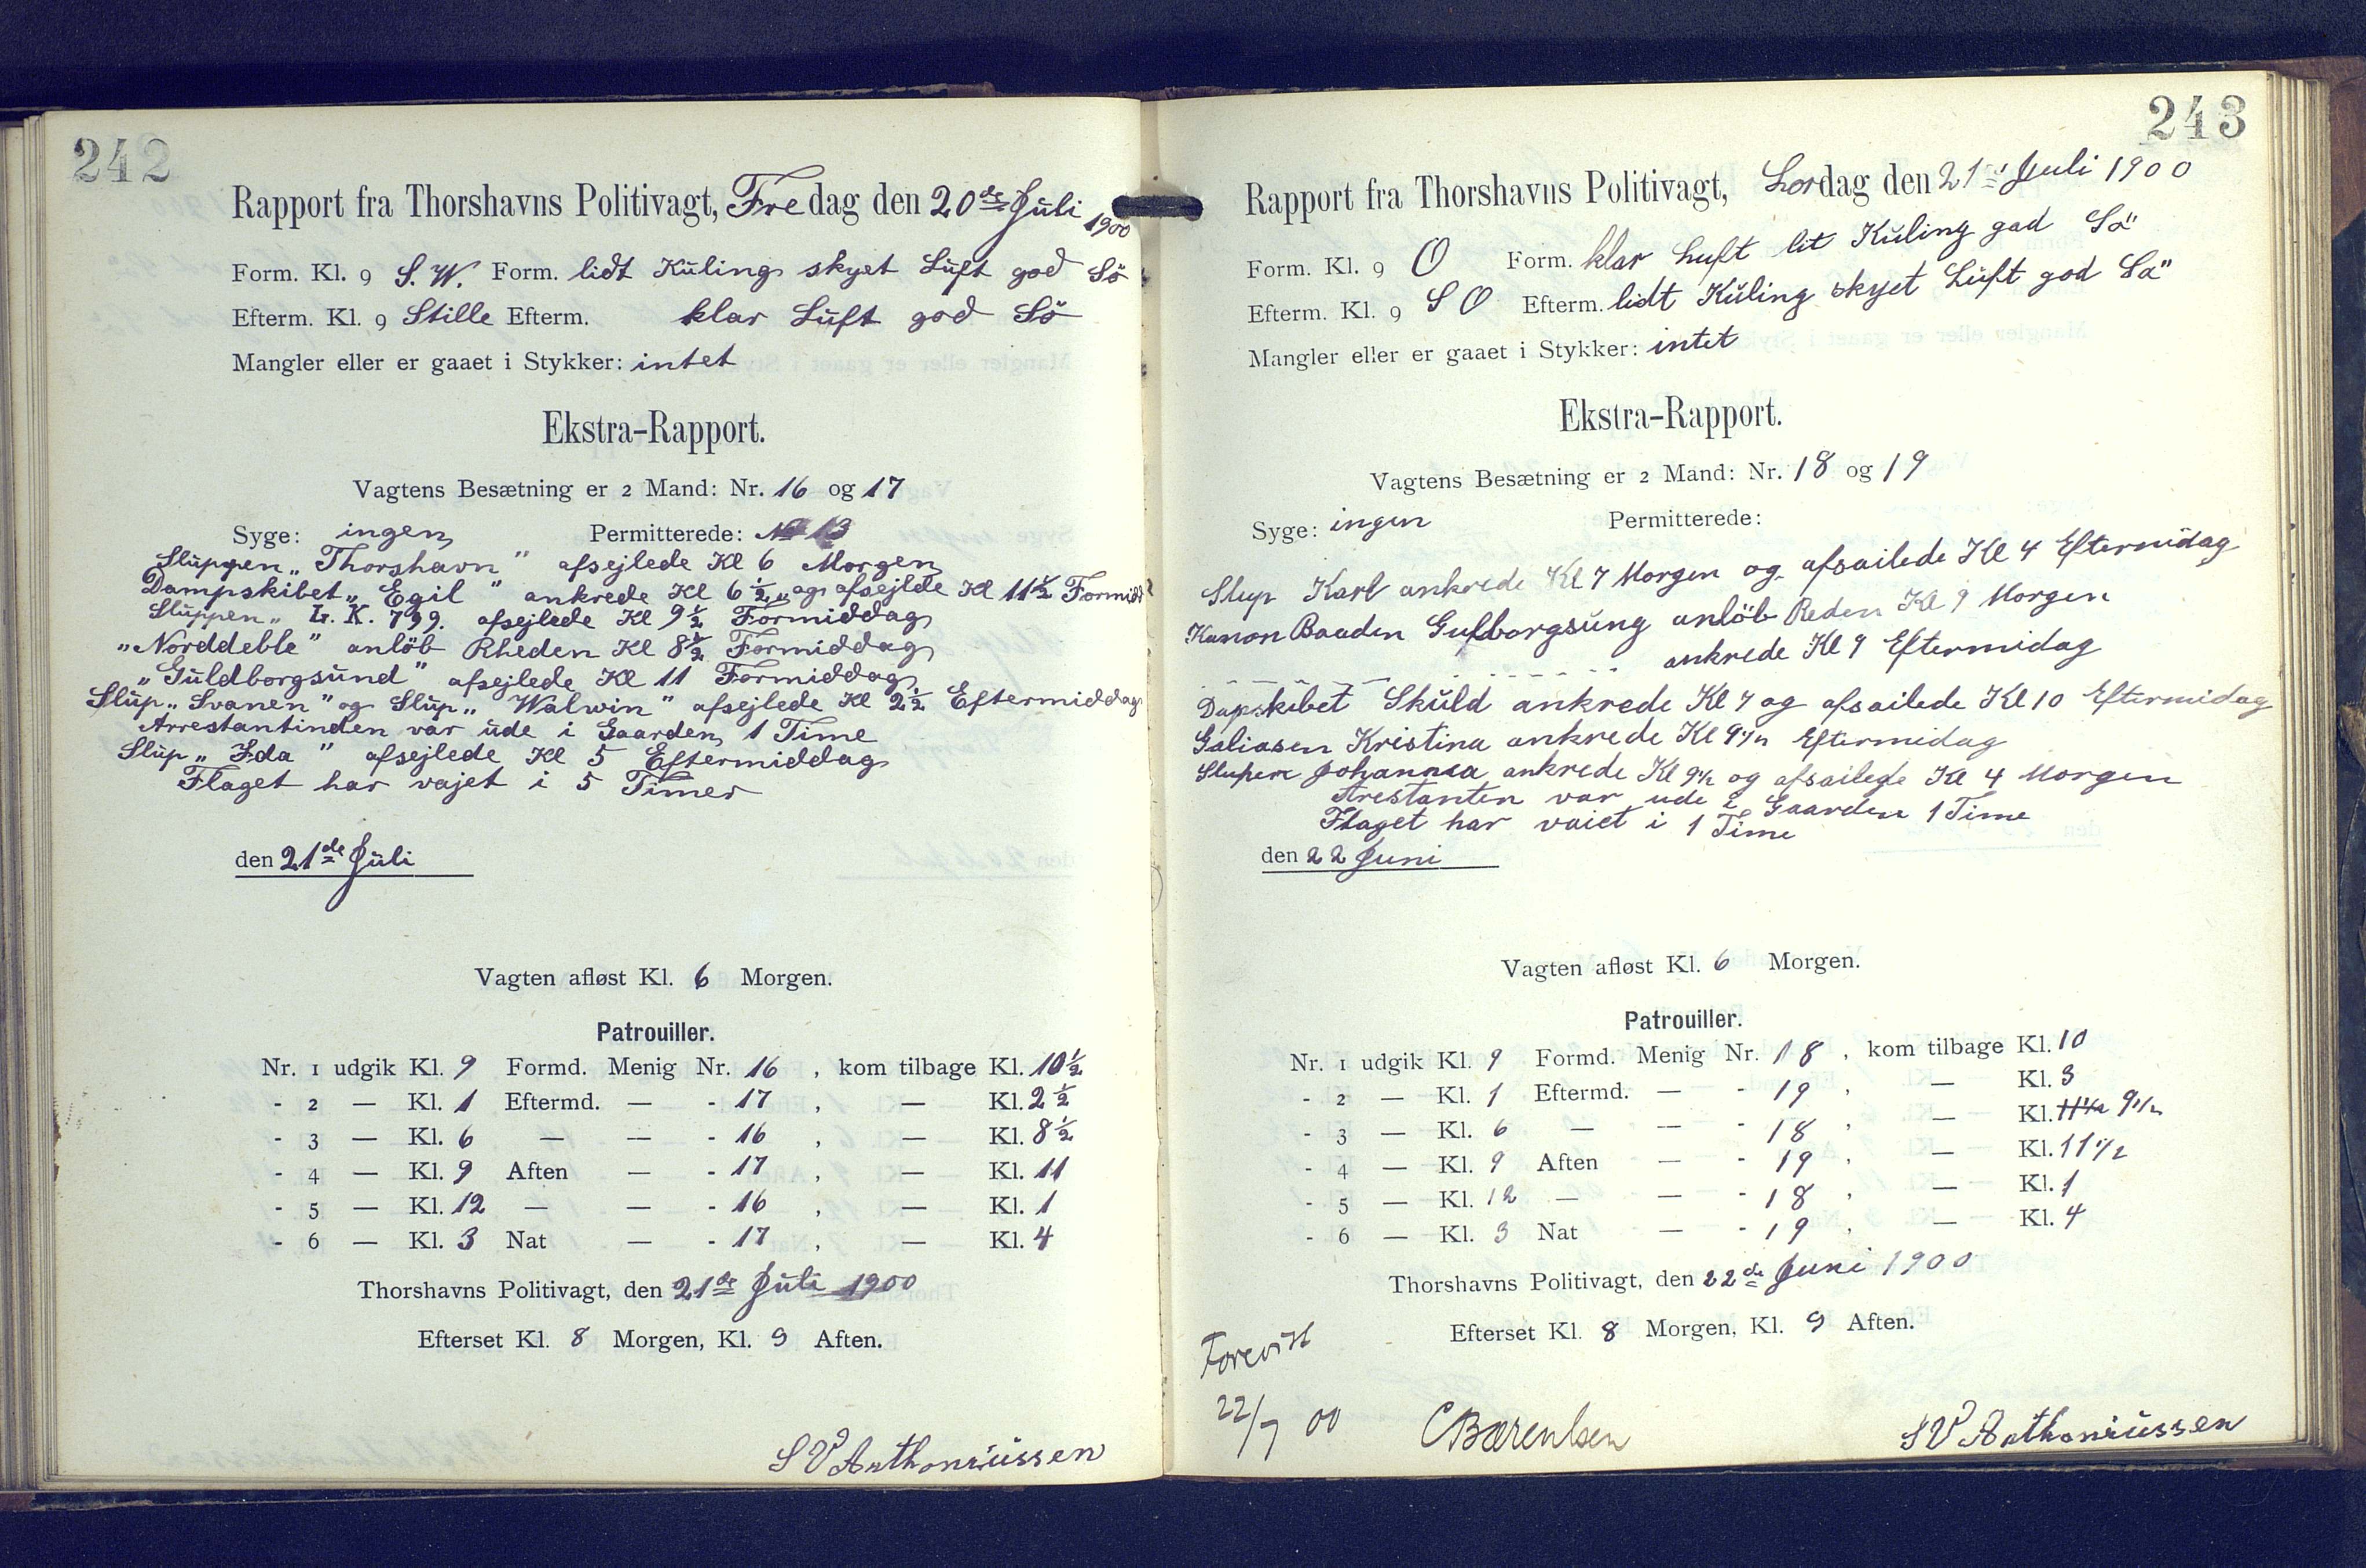 242
Rapport fra Thorshavns Politivagt, Fredag den 20de Júli 1900
Form. Kl. 9 S. W. Form. lidt Kúling skyet Lúft god Sö
Efterm. Kl. 9 Stille Efterm. klar Lúft god Sö
Mangler eller er gaaet i Stykker: intet
Ekstra-Rapport.
Vagtens Besætning er 2 Mand: Nr. 16 og 17
Syge: ingen Permitterede: No 13
Slúppen „Thorshavn" afsejlede Kl 6 Morgen
Dampskibet „Egil" ankrede Kl 6½ „ og afsejlde Kl 11½ Formidd
Slúppen „L. K. 799. afsejlede Kl 9½ Formiddag
„Norddeble" anlöb Rheden Kl 8½ Formiddag
„Gúldborgsúnd" afsejlede Kl 11 Formiddag
Slúp „Svanen" og Slúp „Walwin" afsejlede Kl 2½ Eftermiddag
Arrestantinden var úde i Gaarden 1 Time
Slúp „Ida" afsejlede Kl 5 Eftermiddag
Flaget har vajet i 5 Timer
den 21de Júli
Vagten afløst Kl. 6 Morgen.
Patrouiller.
Nr. 1 udgik Kl. 9 Formd. Menig Nr. 16 , kom tilbage Kl. 10½
- 2 — Kl. 1 Eftermd. — - 17 , — Kl. 2½
- 3 — Kl. 6 — — - 16 , — Kl. 8½
- 4 — Kl. 9 Aften — - 17 , — Kl. 11
- 5 — Kl. 12 — — - 16 , — Kl. 1
- 6 — Kl. 3 Nat — - 17 , — Kl. 4
Thorshavns Politivagt, den 21de Júli 1900
Efterset Kl. 8 Morgen, Kl. 9 Aften.
S V Anthoniússen
243
Rapport fra Thorshavns Politivagt, Lordag den 21de Juli 1900
Form. Kl. 9 O Form. klar Luft lit Kúling gad Sö
Efterm. Kl. 9 S O Efterm. lidt Kúling skyet Lúft god Sö
Mangler eller er gaaet i Stykker: intet
Ekstra-Rapport.
Vagtens Besætning er 2 Mand: Nr. 18 og 19
Syge: ingen Permitterede:
Slup Karl ankrede Kl 7 Morgen og afsailede Kl 4 Eftermidag
Kanon Baaden Gulborgsúng anlöb Reden Kl 9 Morgen
ankrede Kl 9 Eftermidag
Dapskibet Skúld ankrede Kl 7 og afsailede Kl 10 Eftermidag
Galiasen Kristina ankrede Kl 9 1/2 Eftermidag
Slupen Johanna ankrede Kl 9½ og afsailede Kl 4 Morgen
Arestanten var ude i Gaarden 1 Time
Flaget har vaiet i 1 Time
den 22 Juni
Vagten afløst Kl. 6 Morgen.
Patrouiller.
Nr. 1 udgik Kl. 9 Formd. Menig Nr. 18 , kom tilbage Kl. 10
- 2 — Kl. 1 Eftermd. — - 19 , — Kl. 3
- 3 — Kl. 6 — — - 18 , — Kl. 11½ 9 1/2
- 4 — Kl. 9 Aften — - 19 , — Kl. 11 1/2
- 5 — Kl. 12 — — - 18 , — Kl. 1
- 6 — Kl. 3 Nat — - 19 , — Kl. 4
Thorshavns Politivagt, den 22de Juni 1900
Efterset Kl. 8 Morgen, Kl. 9 Aften.
Forevist
22/7 00 CBærentsen
S V Anthoniússen